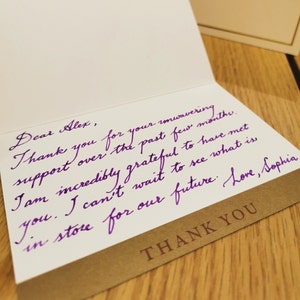 Dear Alex,
Thank you for your unwavering
support over the past few months.
I am incredibly grateful to have met
you. I can't wait to see what is
in store for our future.
Love, Sophia
THANK YOU